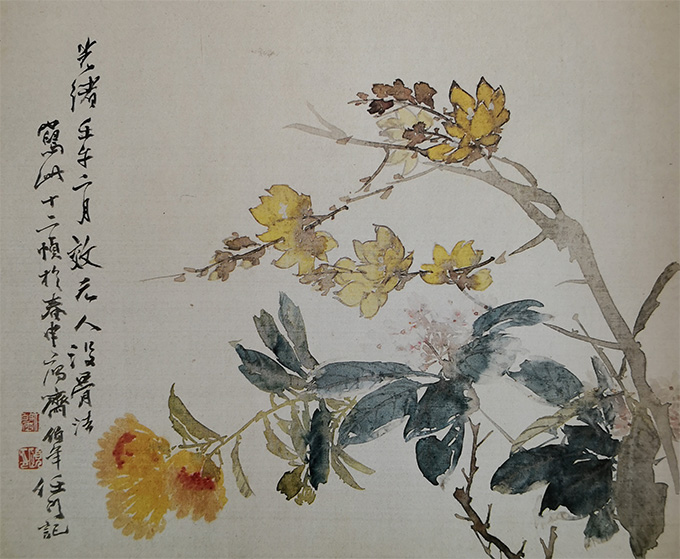 光緒壬午二月效元人没骨法
寫此十二幀於春申寓齋伯年任頤記